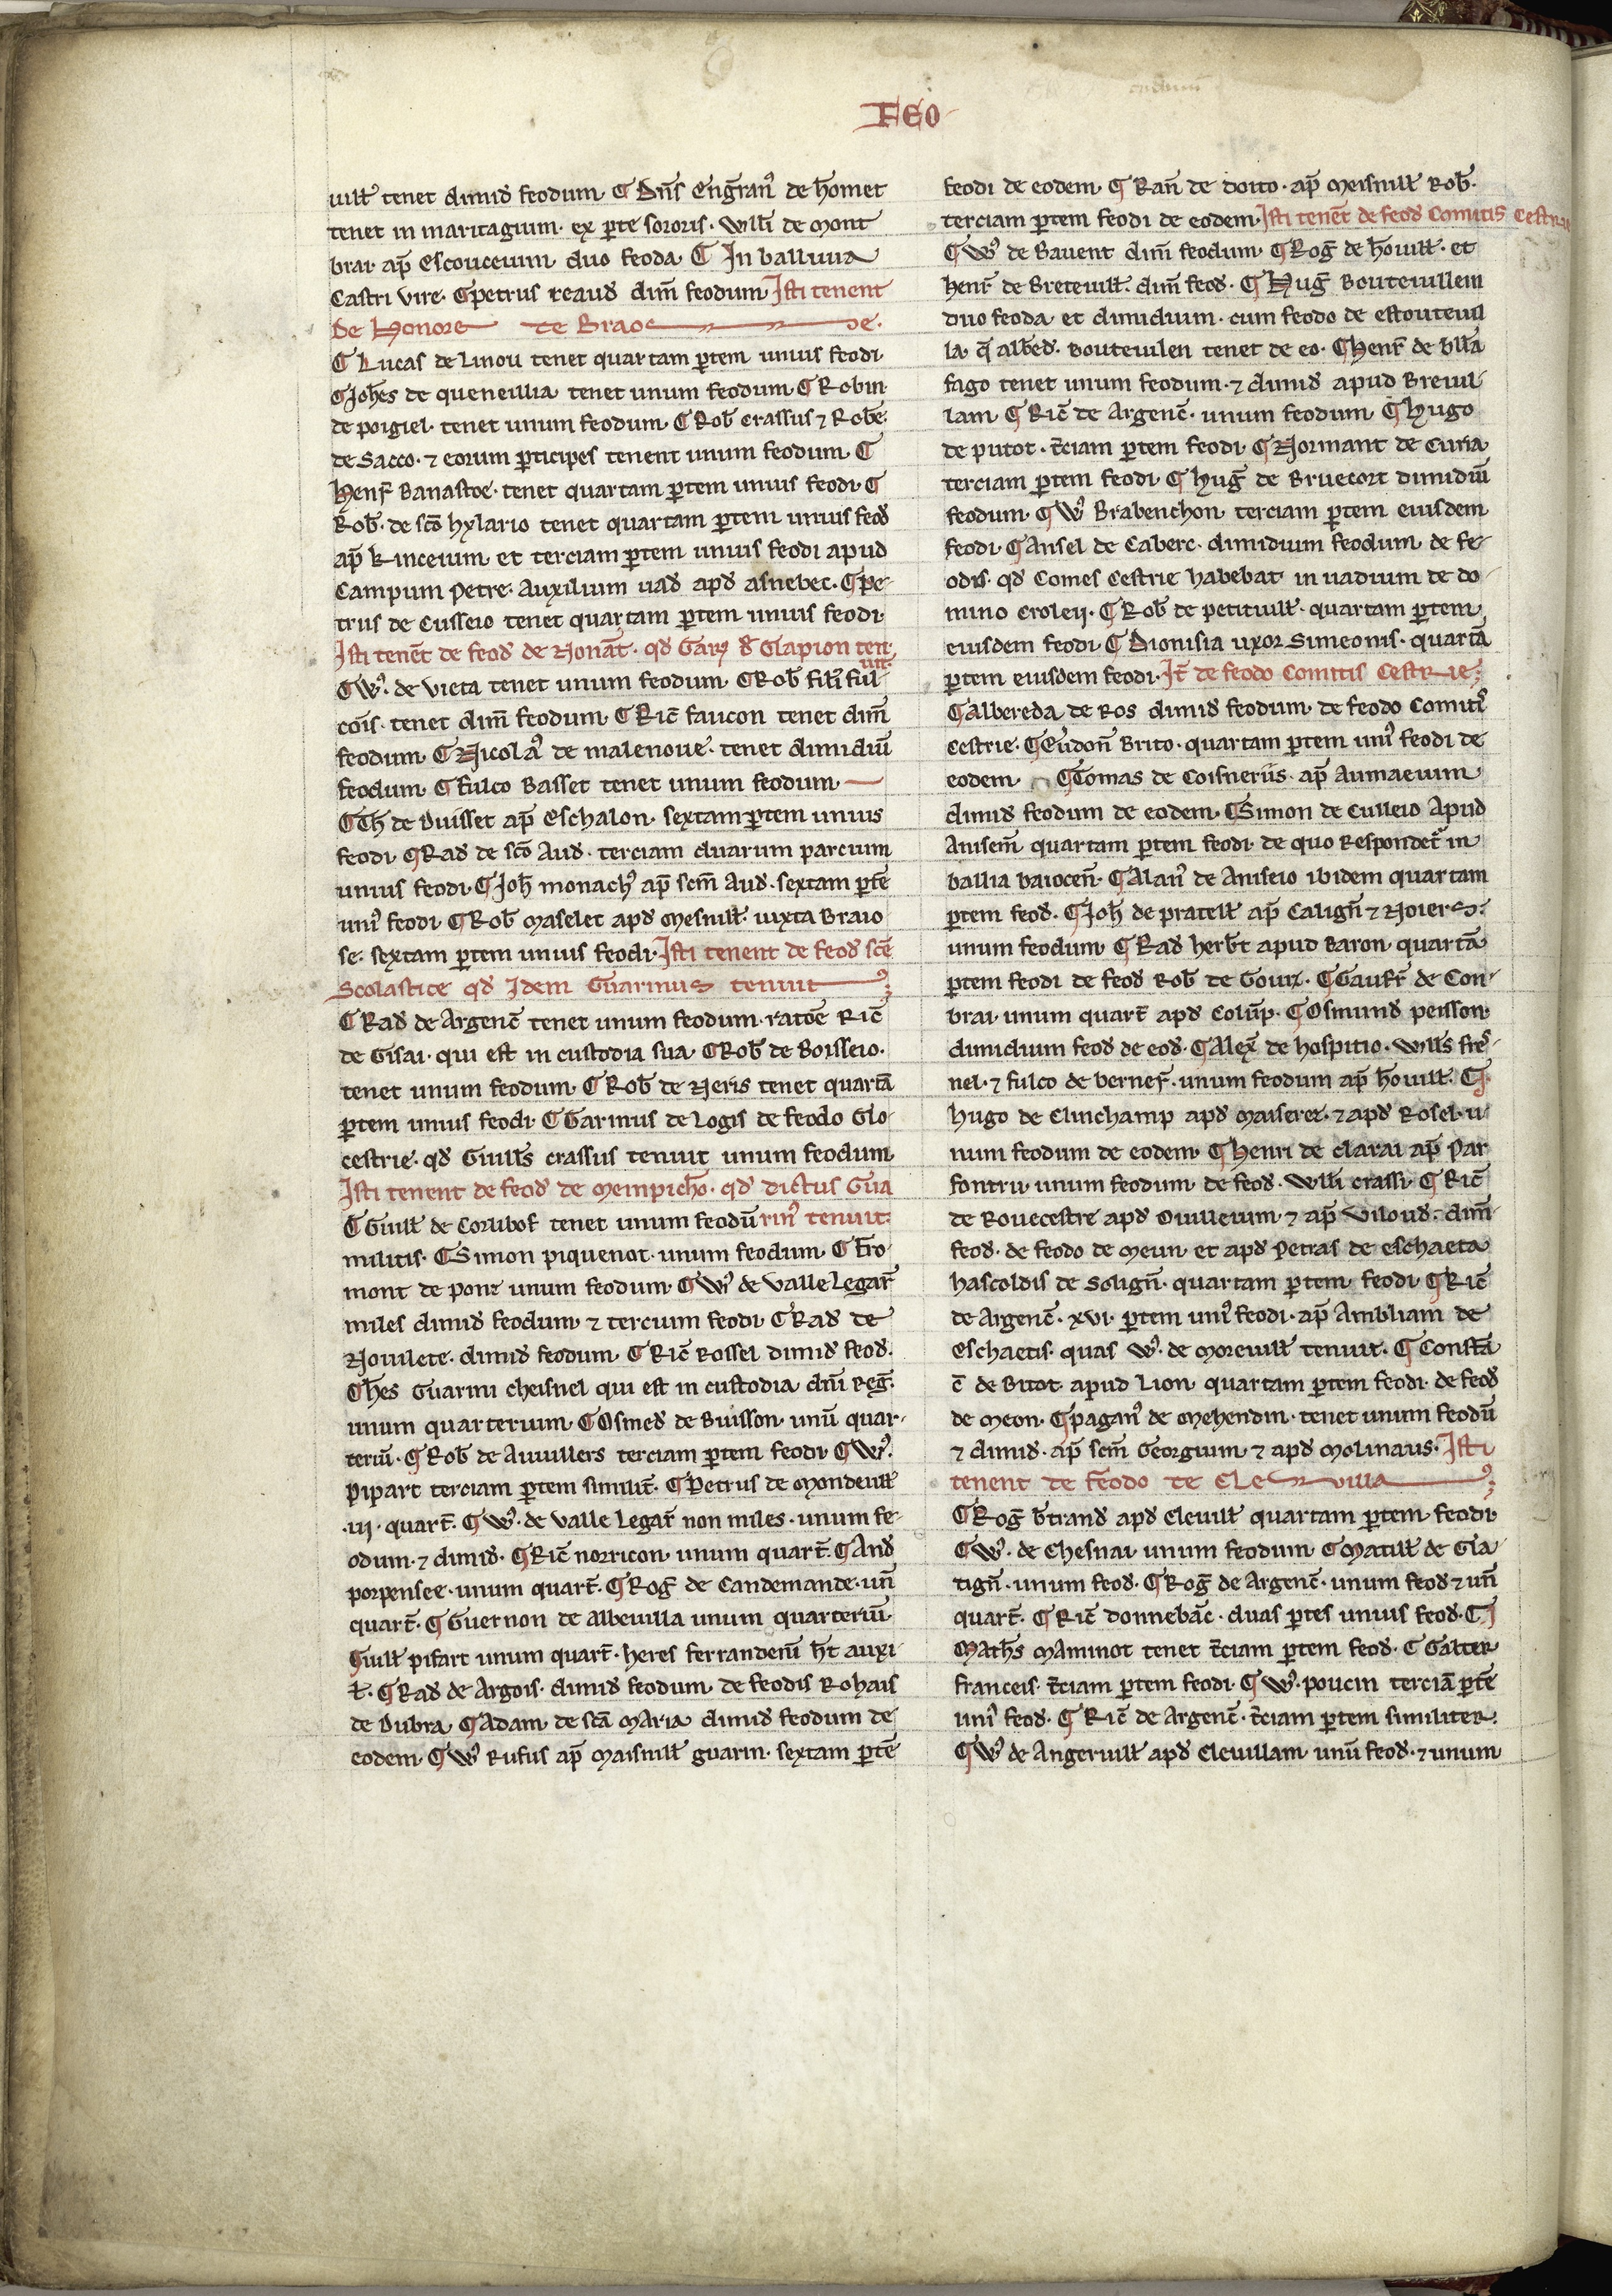 FEO
uill̄ tenet dimid̄ feodum ¶ Dn̄s Engran᷒ de homet
tenet in maritagium. ex ꝑte sororis. Will̄i de mont
brai. ap̄ Escouceium duo feoda ¶ In balliuia
Castri vire. ¶ petrus reaud̄ dim̄ feodum Isti tenent
De Honore de Braose.
¶ Lucas de Linou tenet quartam ꝑtem unius feodi.
¶ Joh̄es de queneillia tenet unum feodum. ¶ Robin
de poigiel. tenet unum feodum. ¶ Rob̄ crassus ⁊ Rob̄.
de Sacco. ⁊ eorum ꝑticipes tenent unum feodum. ¶
Henr̄ Banastoe. tenet quartam ꝑtem unius feodi. ¶
Rob̄. de sc̄o hylario tenet quartam ꝑtem unius feod̄
ap̄ kinceium et terciam ꝑtem unius feodi apud
Campum Petre. Auxilium uad̄ apd̄ asnebec. ¶ pe
trus de Cusseio tenet quartam ꝑtem unius feodi.
Isti tenēt de feod̄ de Nonāt. qd̄ Gar᷒ d̄ Glapion ten
uit.
¶ W᷒. de vieta tenet unum feodum. ¶ Rob̄ filī ful
cois. tenet dim̄ feodum. ¶ Ric̄ faucon tenet dim̄
feodum. ¶ Nicola᷒ de malenoue. tenet dimidiū
feodum. ¶ Fulco Basset tenet unum feodum.
¶ Th̄ de Duisset ap̄ Eschalon. sextam ꝑtem unius
feodi. ¶ Rad̄ de sc̄o Aud̄. terciam duarum parcium
unius feodi. ¶ Joh̄ monach᷒ ap̄ sc̄m Aud̄. sextam ꝑtē
uni᷒ feodi. ¶ Rob̄ maselet apd̄ mesnill̄. iuxta Braio
se. sextam ꝑtem unius feodi. Isti tenent de feod̄ sc̄e
Scolastice qd̄ Idem Guarinus tenuit
¶ Rad̄ de Argenc̄ tenet unum feodum. ratōe Ric̄
de Gisai. qui est in custodia sua. ¶ Rob̄ de Boisseio.
tenet unum feodum. ¶ Rob̄ de Neris tenet quartā
ꝑtem unius feodi. ¶ Garinus de Logis de feodo Glo
cestrie. qd̄ Guill̄s crassus tenuit unum feodum.
Isti tenent de feod̄ de mempinch̄o. qd̄ dictus Gua
¶ Guill̄ de Corlibof tenet unum feodū rin᷒ tenuit.
militis. ¶ Simon piquenot. unum feodum. ¶ Fro
mont de ponz unum feodum. ¶ W᷒ de Valle Legar̄
miles dimid̄ feodum. ⁊ tercium feodi. ¶ Rad̄ de
Nouilete. dimid̄ feodum. ¶ Ric̄ Rossel dimid̄ feod̄.
¶ H̄es Guarini cheisnel qui est in custodia dn̄i Reḡ.
unum quarterium. ¶ Osmed̄ de Buisson. unū quar
teriū. ¶ Rob̄ de Auuillers terciam ꝑtem feodi. ¶ W᷒.
Pipart terciam ꝑtem similit̄. ¶ Petrus de mondeuill̄
.iij. quart̄. ¶ W᷒. de Valle Legar̄ non miles. unum fe
odum. ⁊ dimid̄. ¶ Ric̄ norricon unum quart̄. ¶ And̄
porpensee. unum quart̄. ¶ Roḡ de Candemande. un̄
quart̄. ¶ Guernon de Albeuilla unum quarteriū.
Guill̄ pifart unum quart̄. heres ferranderū h̄t auxi
l̄. ¶ Rad̄ de Argois. dimid̄ feodum de feodis Rohais
de Dubra ¶ Adam de sc̄a maria dimid̄ feodum de
eodem. ¶ W᷒ Rufus ap̄ maisnill̄ guarin. sextam ꝑtē
feodi de eodem. ¶ Ran̄ de doito. ap̄ meisnill̄ Rob̄.
terciam ꝑtem feodi de eodem. Isti tenēt de feod̄ Comitis Cestrie
¶ W᷒ de Bauent dim̄ feodum. ¶ Roḡ de houill̄. et
henr̄ de Breteuill̄. dim̄ feod̄. ¶ Huḡ Bouteuillem
duo feoda et dimidium. cum feodo de estouteuil
la. q̄ albed̄. Bouteuilen tenet de eo. ¶ Henr̄ de bll̄a
fago tenet unum feodum. ⁊ dimid̄ apud Breuil
lam ¶ Ric̄ de Argenc̄. unum feodum ¶ Hugo
de putot. t̄ciam ꝑtem feodi. ¶ Normant de Curia
terciam ꝑtem feodi. ¶ Huḡ de Bruecort dimidiū
feodum. ¶ W᷒ Brabenchon terciam ꝑtem eiusdem
feodi. ¶ Ansel de Caberc. dimidium feodum de fe
odis. qd̄ Comes Cestrie habebat in uadium de do
mino croleij. ¶ Rob̄ de petiuill̄. quartam ꝑtem
eiusdem feodi. ¶ Dionisia uxor Simeonis. quartā
ꝑtem eiusdem feodi. It̄ de feodo Comitis Cestrie;
¶ Albereda de Ros dimid̄ feodum. de feodo Comit᷒
cestrie. ¶ Eudon̄ Brito. quartam ꝑtem uni᷒ feodi de
eodem ¶ Tomas de Coisneriis. ap̄ Aumaeuim
dimid̄ feodum de eodem. ¶ Simon de Culleio Apud
Anisem̄ quartam ꝑtem feodi. de quo Respondet̄ in
ballia baiocen̄. ¶ Alan᷒ de Aniseio ibidem quartam
ꝑtem feod̄. ¶ Joh̄ de pratell̄ ap̄ Calign̄ ⁊ Noiers.
unum feodum. ¶ Rad̄ herb̄t apud Baron quartā
ꝑtem feodi de feod̄ Rob̄ de Gouiz. ¶ Gaufr̄ de Con
brai. unum quart̄ apd̄ Colūp. ¶ Osmund̄ peisson
dimidium feod̄ de eod̄. ¶ Alex̄ de hospitio. Will̄s fres
nel. ⁊ fulco de bernes̄. unum feodum ap̄ houill̄. ¶
hugo de Clinchamp apd̄ maiseret. ⁊ apd̄ Rosel. u
num feodum de eodem. ¶ Henri de clarai ap̄ Par
fontru unum feodum. de feod̄. Will̄i crassi. ¶ Ric̄
de Rouecestre apd̄ Ouilleium ⁊ ap̄ Viloud̄. dim̄
feod̄. de feodo de meun et apd̄ petras de eschaeta
hascoldis de Solign̄. quartam ꝑtem feodi. ¶ Ric̄
de Argenc̄. xvi. ꝑtem uni᷒ feodi. ap̄ Ambliam de
Eschaetis. quas W᷒. de moreuill̄ tenuit. ¶ Constā
c̄ de Bitot. apud Lion quartam ꝑtem feodi. de feod̄
de meon. ¶ Pagan᷒ de mehendin. tenet unum feodū
⁊ dimid̄. ap̄ sc̄m Georgium ⁊ apd̄ Molinaus. Isti
tenent de feodo de Cleuilla
¶ Roḡ b̄trand̄ apd̄ Cleuill̄ quartam ꝑtem feodi.
¶ W᷒. de Chesnai unum feodum ¶ Matill̄ de Gla
tign̄. unum feod̄. ¶ Roḡ de Argenc̄. unum feod̄ ⁊ un̄
quart̄. ¶ Ric̄ donnebac̄. duas ꝑtes unius feod̄. ¶
Math̄s maminot tenet t̄ciam ꝑtem feod̄. ¶ Galter
franceis. t̄ciam ꝑtem feodi. ¶ W᷒. poucin terciā ꝑtē
uni᷒ feod̄. ¶ Ric̄ de Argenc̄. t̄ciam ꝑtem similiter.
¶ W᷒ de Angeruill̄ apd̄ Cleuillam unū feod̄. ⁊ unum